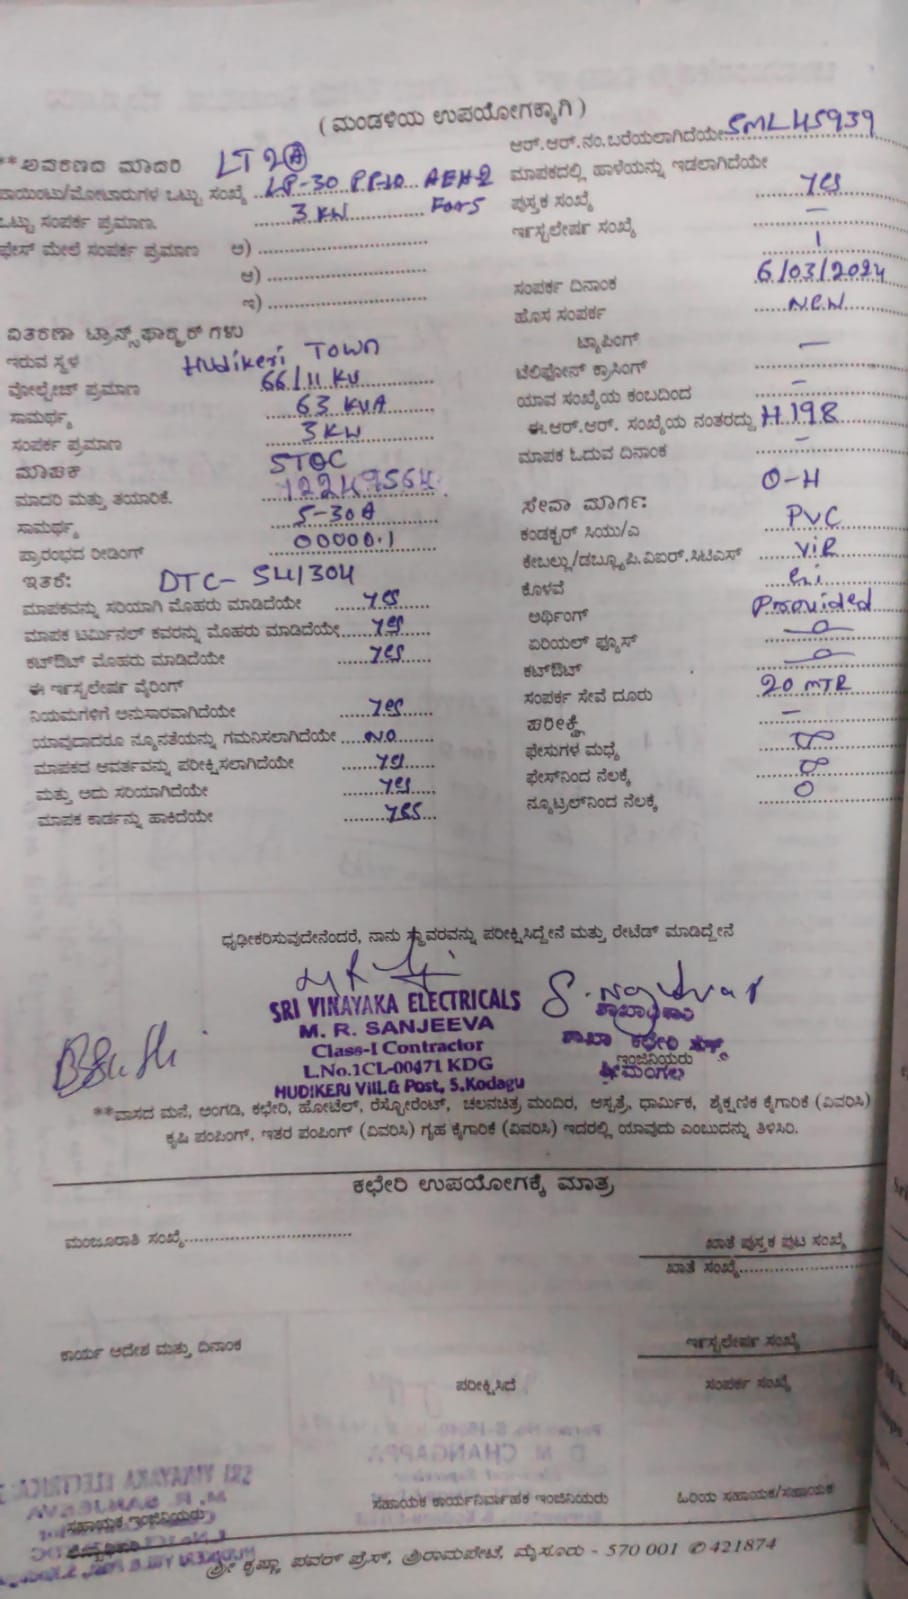 ( ಮಂಡಳಿಯ ಉಪಯೋಗಕ್ಕಾಗಿ )
**ಅವಕರಣದ ಮಾದರಿ LT 2(A)
ಪಾಯಿಂಟು/ಮೋಟಾರುಗಳ ಒಟ್ಟು ಸಂಖ್ಯೆ LP-30 PP-10 AEH-2
ಒಟ್ಟು ಸಂಪರ್ಕ ಪ್ರಮಾಣ 3 KW Fan5
ಫೇಸ್ ಮೇಲೆ ಸಂಪರ್ಕ ಪ್ರಮಾಣ ಅ)
ಆ)
ಇ)
ವಿತರಣಾ ಟ್ರಾನ್ಸ್‌ಫಾರ್ಮ್ರರ್‌ಗಳು
ಇರುವ ಸ್ಥಳ Hudikeri Town
ವೋಲ್ಟೇಜ್ ಪ್ರಮಾಣ 66/11 KV
ಸಾಮರ್ಥ್ಯ 63 KVA
ಸಂಪರ್ಕ ಪ್ರಮಾಣ 3 KW
ಮಾಪಕ
ಮಾದರಿ ಮತ್ತು ತಯಾರಿಕೆ. 12249564
ಸಾಮರ್ಥ್ಯ 5-30A
ಪ್ರಾರಂಭದ ರೀಡಿಂಗ್ 00000.1
ಇತರೆ: DTC- SU/304
ಮಾಪಕವನ್ನು ಸರಿಯಾಗಿ ಮೊಹರು ಮಾಡಿದೆಯೇ yes
ಮಾಪಕ ಟರ್ಮಿನಲ್ ಕವರನ್ನು ಮೊಹರು ಮಾಡಿದೆಯೇ yes
ಕಟ್‌ಔಟ್ ಮೊಹರು ಮಾಡಿದೆಯೇ yes
ಈ ಇನ್ಸ್ಟಲೇಷನ್ ವೈರಿಂಗ್
ನಿಯಮಗಳಿಗೆ ಅನುಸಾರವಾಗಿದೆಯೇ yes
ಯಾವುದಾದರೂ ನ್ಯೂನತೆಯನ್ನು ಗಮನಿಸಲಾಗಿದೆಯೇ NO
ಮಾಪಕದ ಆವರ್ತವನ್ನು ಪರೀಕ್ಷಿಸಲಾಗಿದೆಯೇ yes
ಮತ್ತು ಅದು ಸರಿಯಾಗಿದೆಯೇ yes
ಮಾಪಕ ಕಾರ್ಡನ್ನು ಹಾಕಿದೆಯೇ yes
ಆರ್.ಆರ್.ನಂ.ಬರೆಯಲಾಗಿದೆಯೇ SML45939
ಮಾಪಕದಲ್ಲಿ ಹಾಳೆಯನ್ನು ಇಡಲಾಗಿದೆಯೇ yes
ಪುಸ್ತಕ ಸಂಖ್ಯೆ —
ಇನ್ಸ್ಟಲೇಷನ್ ಸಂಖ್ಯೆ 1
ಸಂಪರ್ಕ ದಿನಾಂಕ 6/03/2024
ಹೊಸ ಸಂಪರ್ಕ New
ಟ್ಯಾಪಿಂಗ್ —
ಟೆಲಿಫೋನ್ ಕ್ರಾಸಿಂಗ್
ಯಾವ ಸಂಖ್ಯೆಯ ಕಂಬದಿಂದ —
ಈ.ಆರ್.ಆರ್. ಸಂಖ್ಯೆಯ ನಂತರದ್ದು H.198
ಮಾಪಕ ಓದುವ ದಿನಾಂಕ —
O-H
ಸೇವಾ ಮಾರ್ಗ:
ಕಂಡಕ್ಟರ್ ಸಿಯು/ಎ PVC
ಕೇಬಲ್ಲು/ಡಬ್ಲ್ಯೂ.ಪಿ.ವಿಐಆರ್.ಸಿಟಿಎಸ್ VIR
ಕೊಳವೆ
ಅರ್ಥಿಂಗ್ Provided
ಏರಿಯಲ್ ಫ್ಯೂಸ್
ಕಟ್‌ಔಟ್
ಸಂಪರ್ಕ ಸೇವೆ ದೂರು 20 MTR
ಪರೀಕ್ಷೆ —
ಫೇಸುಗಳ ಮಧ್ಯೆ ∞
ಫೇಸ್‌ನಿಂದ ನೆಲಕ್ಕೆ ∞
ನ್ಯೂಟ್ರಲ್‌ನಿಂದ ನೆಲಕ್ಕೆ 0
ಧೃಢೀಕರಿಸುವುದೇನೆಂದರೆ, ನಾನು ಸ್ಥಾವರವನ್ನು ಪರೀಕ್ಷಿಸಿದ್ದೇನೆ ಮತ್ತು ರೇಟೆಡ್ ಮಾಡಿದ್ದೇನೆ
SRI VINAYAKA ELECTRICALS
M. R. SANJEEVA
Class-I Contractor
L.No.1CL-00471 KDG
HUDIKERI Vill.& Post, S.Kodagu
ಶಾಖಾಧಿಕಾರಿ
ಶಾಖಾ ಕಛೇರಿ
ಇಂಜಿನಿಯರು
ಶ್ರೀಮಂಗಲ
**ವಾಸದ ಮನೆ, ಅಂಗಡಿ, ಕಛೇರಿ, ಹೋಟೆಲ್, ರೆಸ್ಟೋರೆಂಟ್, ಚಲನಚಿತ್ರ ಮಂದಿರ, ಆಸ್ಪತ್ರೆ, ಧಾರ್ಮಿಕ, ಶೈಕ್ಷಣಿಕ ಕೈಗಾರಿಕೆ (ವಿವರಿಸಿ)
ಕೃಷಿ ಪಂಪಿಂಗ್, ಇತರ ಪಂಪಿಂಗ್ (ವಿವರಿಸಿ) ಗೃಹ ಕೈಗಾರಿಕೆ (ವಿವರಿಸಿ) ಇದರಲ್ಲಿ ಯಾವುದು ಎಂಬುದನ್ನು ತಿಳಿಸಿರಿ.
ಕಛೇರಿ ಉಪಯೋಗಕ್ಕೆ ಮಾತ್ರ
ಮಂಜೂರಾತಿ ಸಂಖ್ಯೆ
ಖಾತೆ ಪುಸ್ತಕ ಪುಟ ಸಂಖ್ಯೆ
ಖಾತೆ ಸಂಖ್ಯೆ
ಕಾರ್ಯ ಆದೇಶ ಮತ್ತು ದಿನಾಂಕ
ಇನ್ಸ್ಟಲೇಷನ್ ಸಂಖ್ಯೆ
ಪರೀಕ್ಷಿಸಿದೆ
ಸಂಪರ್ಕ ಸಂಖ್ಯೆ
ಸಹಾಯಕ ಇಂಜಿನಿಯರು
ಸಹಾಯಕ ಕಾರ್ಯನಿರ್ವಾಹಕ ಇಂಜಿನಿಯರು
ಹಿರಿಯ ಸಹಾಯಕ/ಸಹಾಯಕ
ಶ್ರೀ ಕೃಷ್ಣಾ ಪವರ್ ಪ್ರೆಸ್, ಶ್ರೀರಾಮಪೇಟೆ, ಮೈಸೂರು - 570 001 ✆ 421874